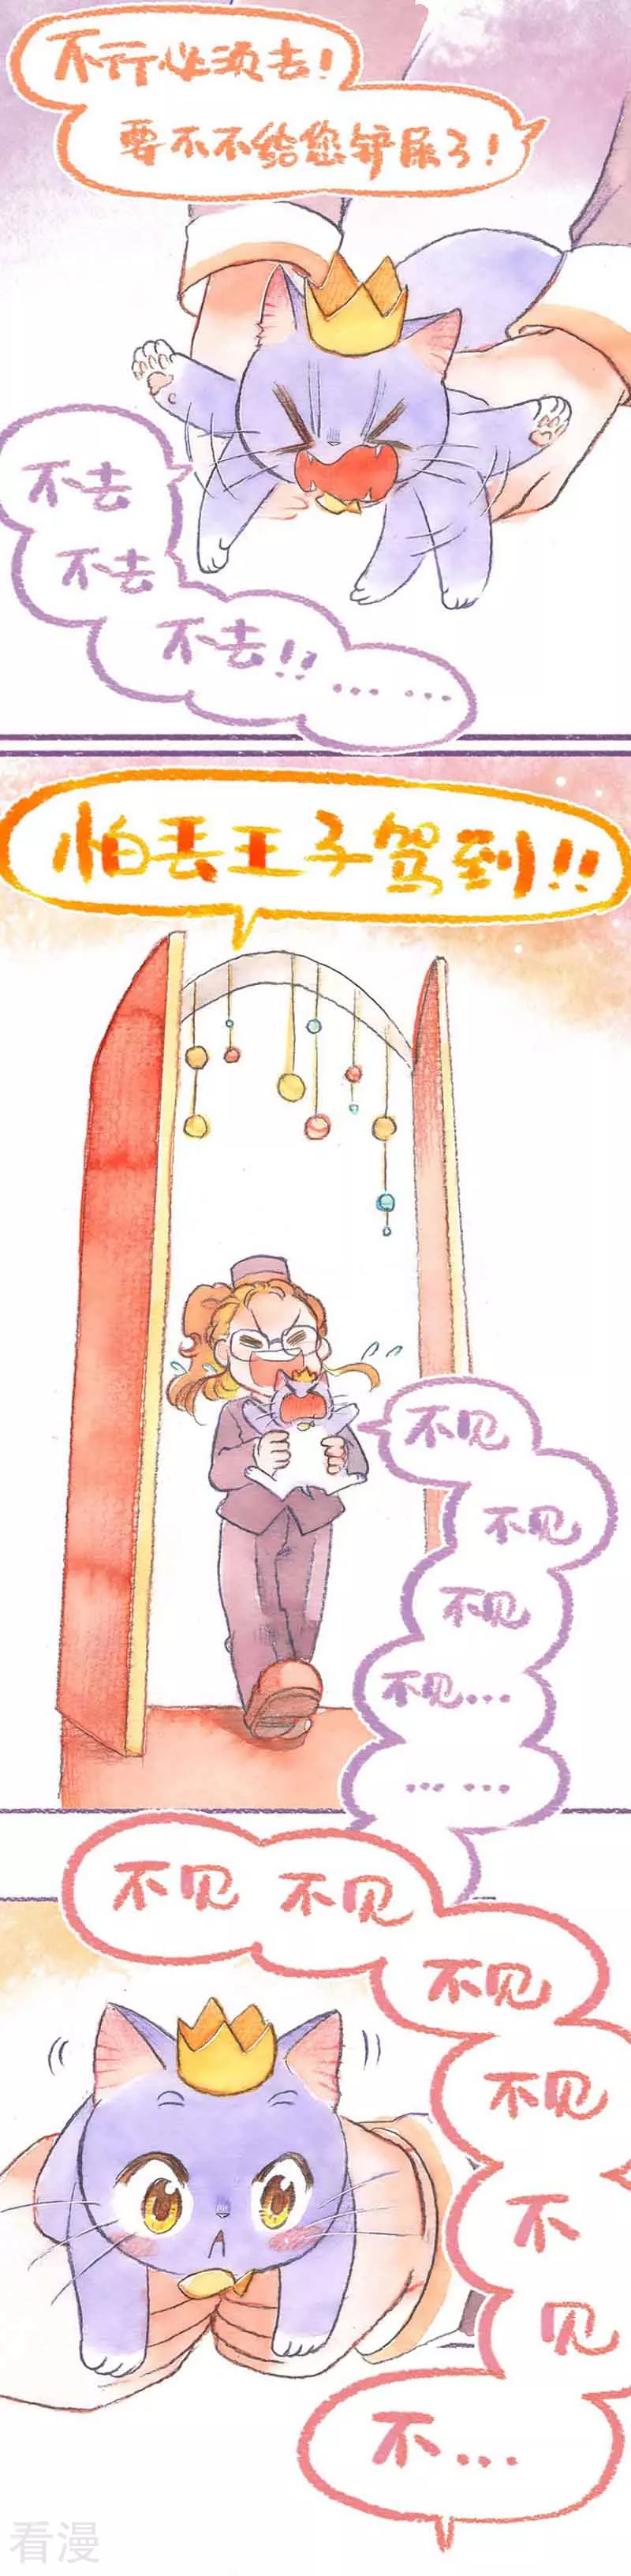 不行必须去！
要不不给您铲屎了！
不去
不去
不去!!……
怕丢王子驾到!!
不见
不见
不见
不见…
……
不见 不见
不见
不见
不
见
不…
看漫